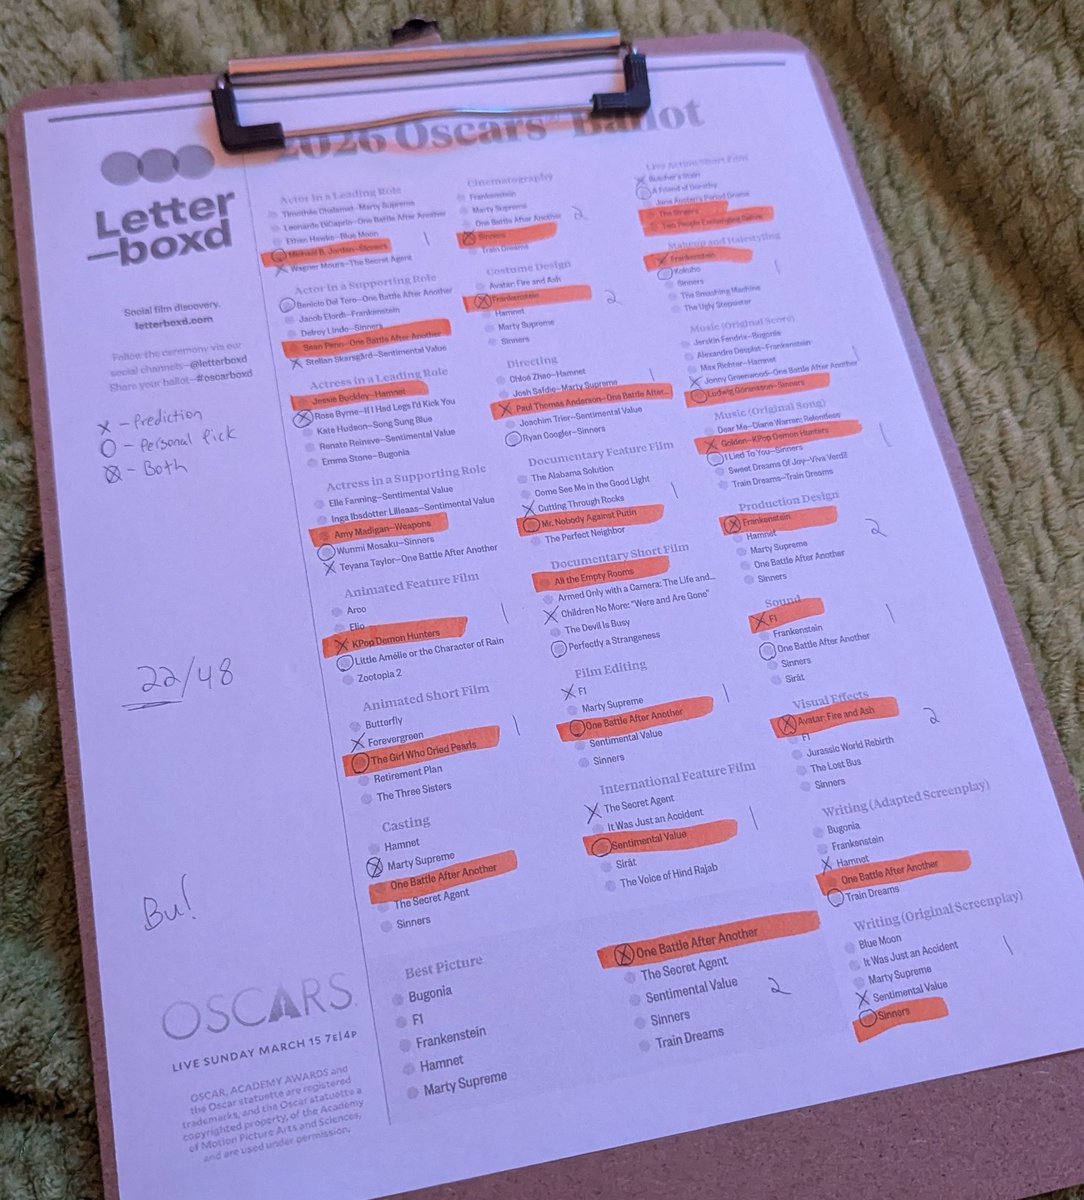 2026 Oscars® Ballot
Letter
—boxd
Social film discovery.
letterboxd.com
Follow the ceremony via our
social channels—@letterboxd
Share your ballot—#oscarboxd
X - Prediction
O - Personal Pick
⊗ - Both
22/48
Bu!
OSCARS
LIVE SUNDAY MARCH 15 7E|4P
OSCAR, ACADEMY AWARDS and
the Oscar statuette are registered
trademarks, and the Oscar statuette a
copyrighted property, of the Academy
of Motion Picture Arts and Sciences,
and are used under permission.
Actor in a Leading Role
Timothée Chalamet—Marty Supreme
Leonardo DiCaprio—One Battle After Another
Ethan Hawke—Blue Moon
Michael B. Jordan—Sinners
1
Wagner Moura—The Secret Agent
Actor in a Supporting Role
Benicio Del Toro—One Battle After Another
Jacob Elordi—Frankenstein
Delroy Lindo—Sinners
Sean Penn—One Battle After Another
Stellan Skarsgård—Sentimental Value
Actress in a Leading Role
Jessie Buckley—Hamnet
Rose Byrne—If I Had Legs I'd Kick You
Kate Hudson—Song Sung Blue
Renate Reinsve—Sentimental Value
Emma Stone—Bugonia
Actress in a Supporting Role
Elle Fanning—Sentimental Value
Inga Ibsdotter Lilleaas—Sentimental Value
Amy Madigan—Weapons
Wunmi Mosaku—Sinners
Teyana Taylor—One Battle After Another
Animated Feature Film
Arco
Elio
KPop Demon Hunters
1
Little Amélie or the Character of Rain
Zootopia 2
Animated Short Film
Butterfly
Forevergreen
The Girl Who Cried Pearls
1
Retirement Plan
The Three Sisters
Casting
Hamnet
Marty Supreme
One Battle After Another
The Secret Agent
Sinners
Cinematography
Frankenstein
Marty Supreme
One Battle After Another
2
Sinners
Train Dreams
Costume Design
Avatar: Fire and Ash
Frankenstein
2
Hamnet
Marty Supreme
Sinners
Directing
Chloé Zhao—Hamnet
Josh Safdie—Marty Supreme
1
Paul Thomas Anderson—One Battle After...
Joachim Trier—Sentimental Value
Ryan Coogler—Sinners
Documentary Feature Film
The Alabama Solution
Come See Me in the Good Light
Cutting Through Rocks
1
Mr. Nobody Against Putin
The Perfect Neighbor
Documentary Short Film
All the Empty Rooms
Armed Only with a Camera: The Life and...
Children No More: "Were and Are Gone"
The Devil Is Busy
Perfectly a Strangeness
Film Editing
F1
Marty Supreme
One Battle After Another
1
Sentimental Value
Sinners
International Feature Film
The Secret Agent
It Was Just an Accident
Sentimental Value
1
Sirāt
The Voice of Hind Rajab
Live Action Short Film
Butcher's Stain
A Friend of Dorothy
Jane Austen's Period Drama
The Singers
Two People Exchanging Saliva
Makeup and Hairstyling
Frankenstein
1
Kokuho
Sinners
The Smashing Machine
The Ugly Stepsister
Music (Original Score)
Jerskin Fendrix—Bugonia
Alexandre Desplat—Frankenstein
Max Richter—Hamnet
1
Jonny Greenwood—One Battle After Another
Ludwig Göransson—Sinners
Music (Original Song)
Dear Me—Diane Warren: Relentless
Golden—KPop Demon Hunters
1
I Lied To You—Sinners
Sweet Dreams Of Joy—Viva Verdi!
Train Dreams—Train Dreams
Production Design
Frankenstein
2
Hamnet
Marty Supreme
One Battle After Another
Sinners
Sound
F1
1
Frankenstein
One Battle After Another
Sinners
Sirāt
Visual Effects
Avatar: Fire and Ash
2
F1
Jurassic World Rebirth
The Lost Bus
Sinners
Writing (Adapted Screenplay)
Bugonia
Frankenstein
Hamnet
One Battle After Another
Train Dreams
Writing (Original Screenplay)
Blue Moon
It Was Just an Accident
1
Marty Supreme
Sentimental Value
Sinners
Best Picture
Bugonia
F1
Frankenstein
Hamnet
Marty Supreme
One Battle After Another
The Secret Agent
Sentimental Value
2
Sinners
Train Dreams